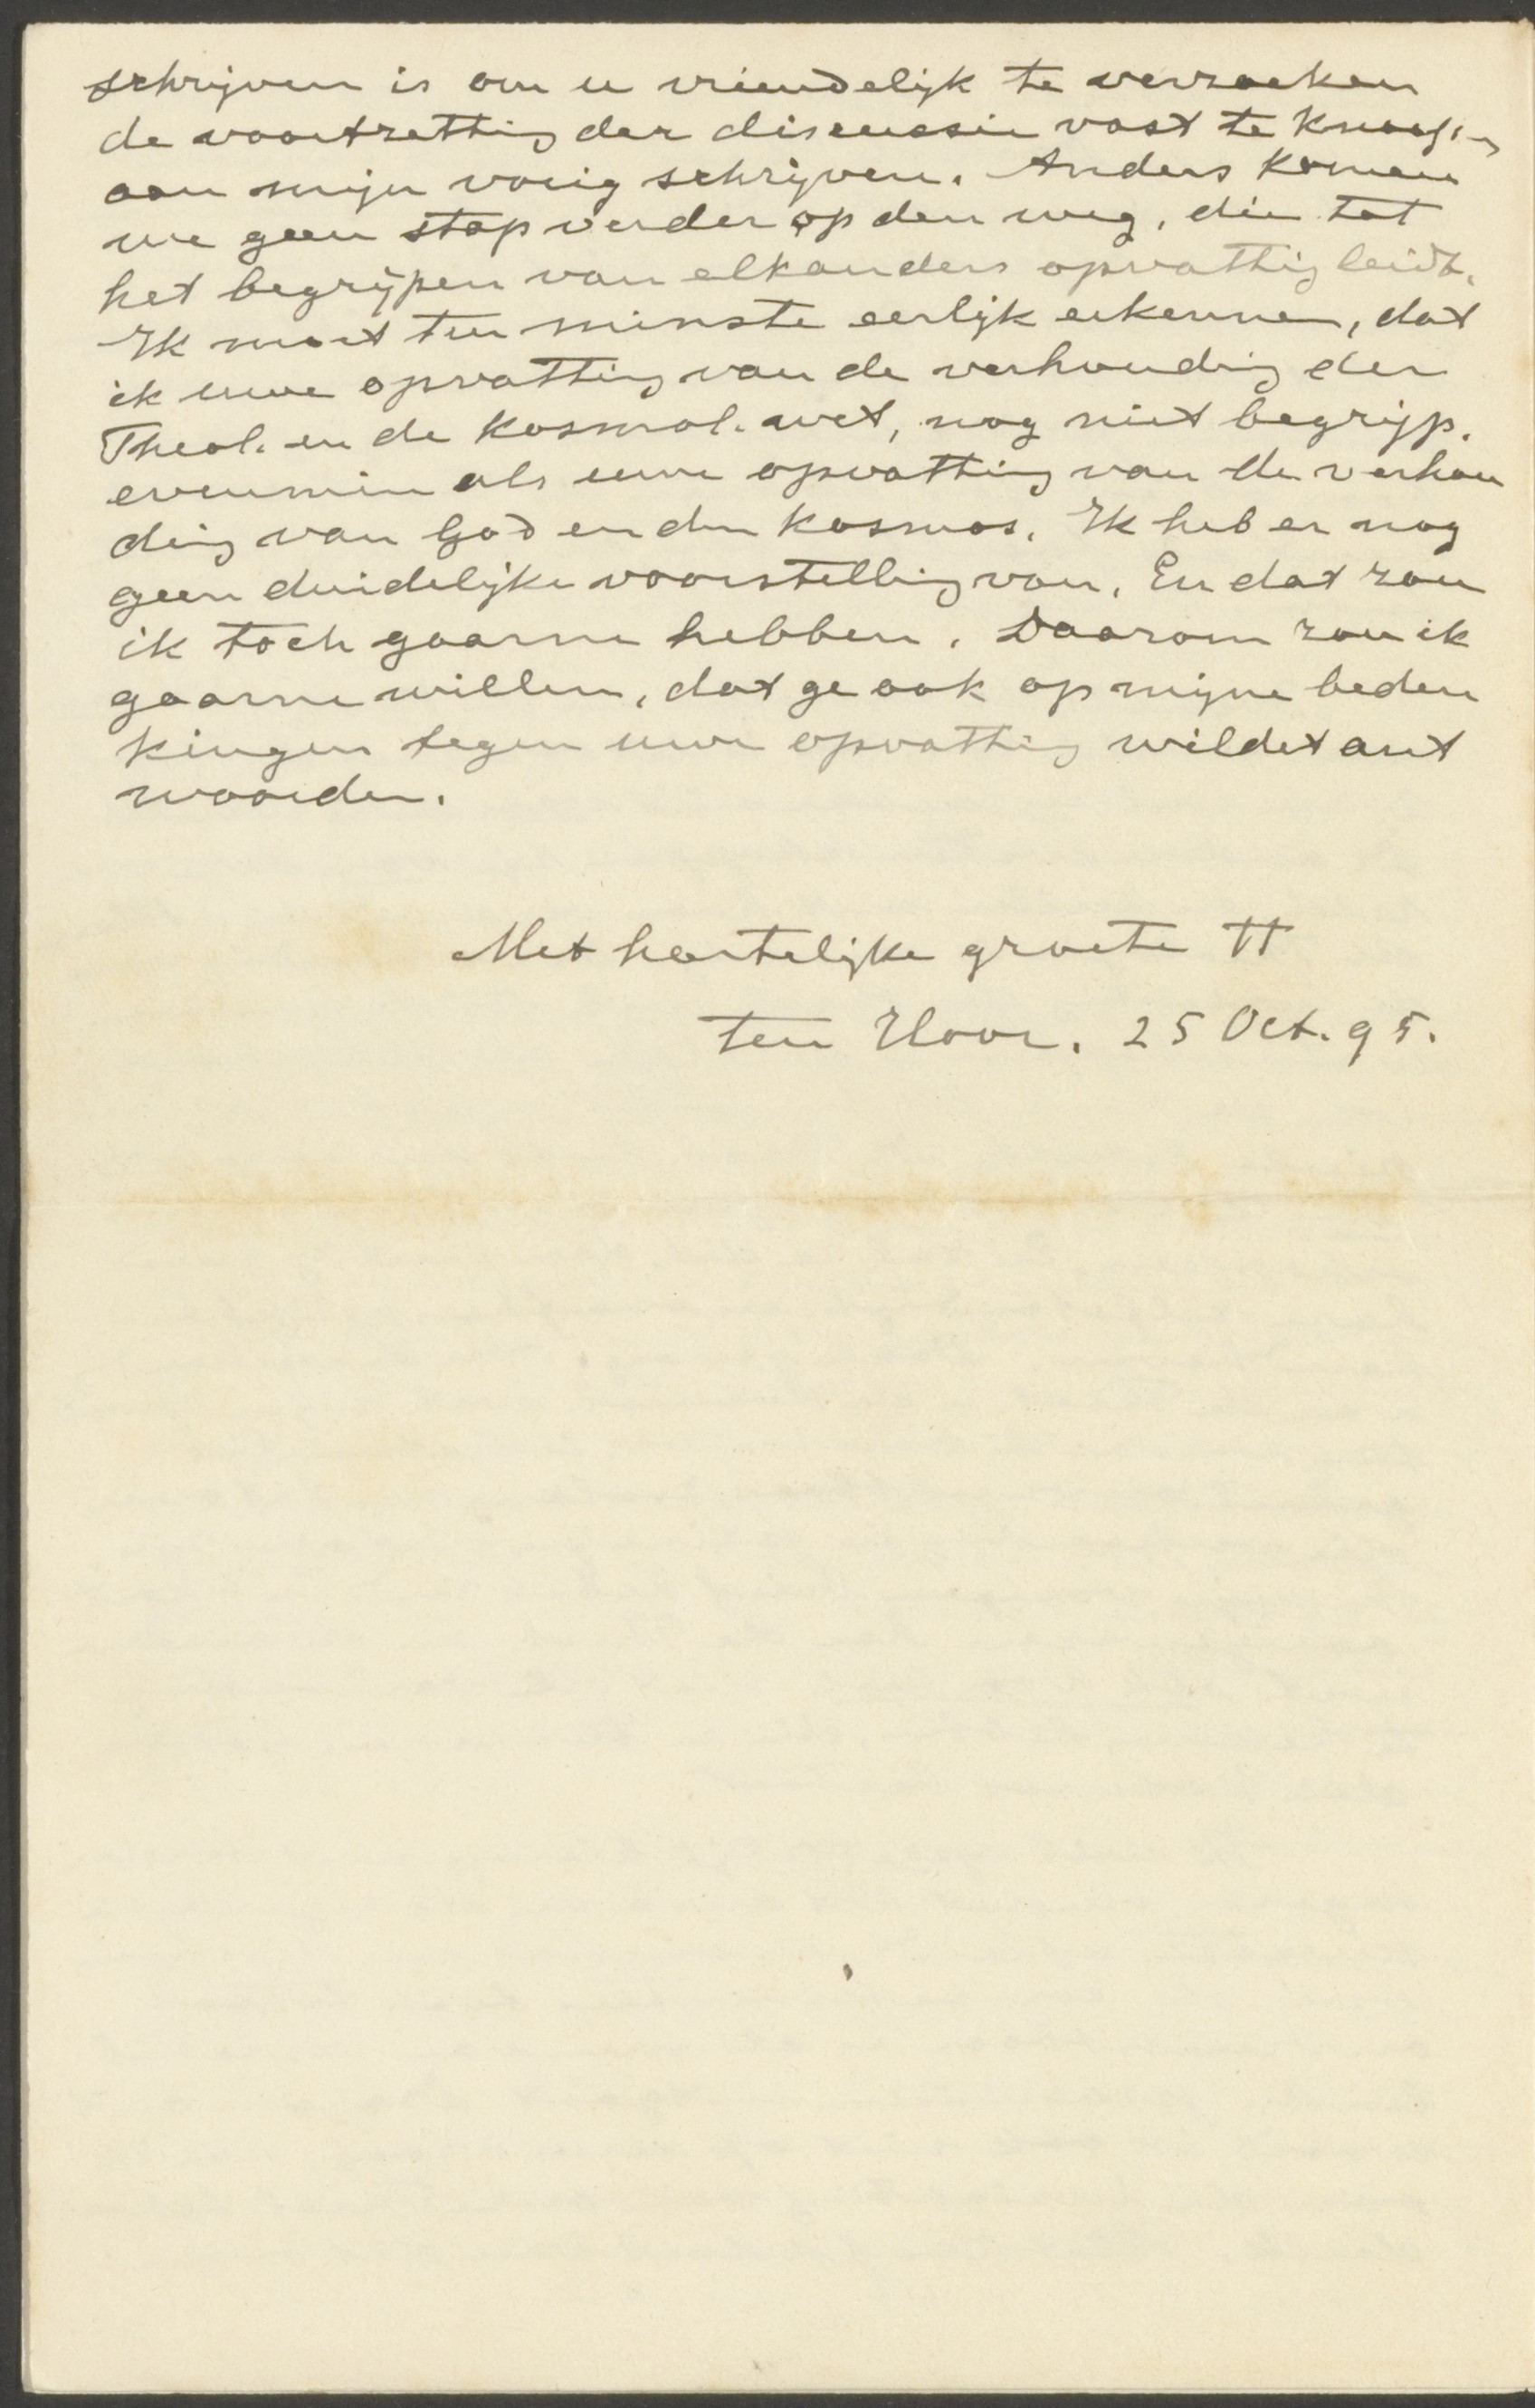 schrijven is om u vriendelijk te verzoeken
de voortzetting der discussie vast te knoopen
aan mijn vorig schrijven. Anders komen
we geen stap verder op den weg, die tot
het begrijpen van elkanders opvatting leidt.
Ik moet ten minste eerlijk erkennen, dat
ik uwe opvatting van de verhouding der
Theol. en de kosmol. wet, nog niet begrijp.
evenmin als uwe opvatting van de verhou
ding van God en den kosmos. Ik heb er nog
geen duidelijke voorstelling van. En dat zou
ik toch gaarne hebben. Daarom zou ik
gaarne willen, dat ge ook op mijne beden
kingen tegen uwe opvatting wildet ant
woorden.
Met hartelijke groete tt
ten Hoor. 25 Oct. 95.